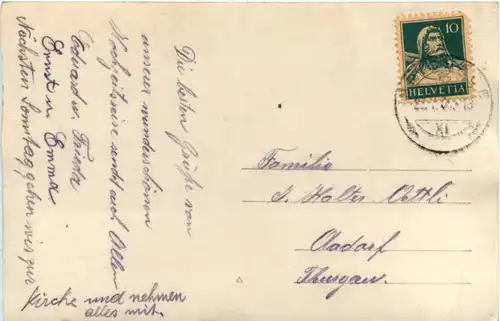 Die besten Grüße von
unserer wunderschönen
Hochzeitsreise sendt euch Allen
Eduard u. Frieda
Ernst u. Emma
Nächsten Sonntag gehen wir zur
Kirche und nehmen
alles mit.
10
HELVETIA
XI
Familie
Halter
Aadorf
Thurgau.